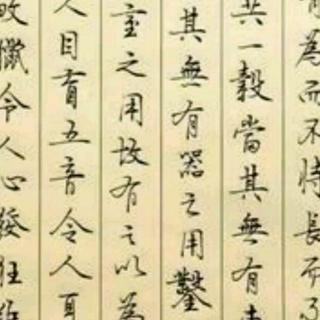 有為而不恃長而不
共一轂當其無有車
其無有器之用鑿
室之用故有之以為
人目盲五音令人耳
畋獵令人心發狂難